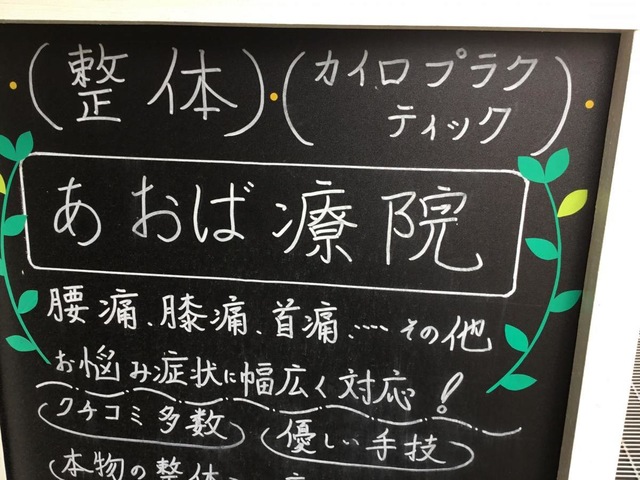 (整体)・(カイロプラク
ティック)
あおば療院
腰痛、膝痛、首痛、…‥その他
お悩み症状に幅広く対応!
クチコミ多数 優しい手技
本物の整体